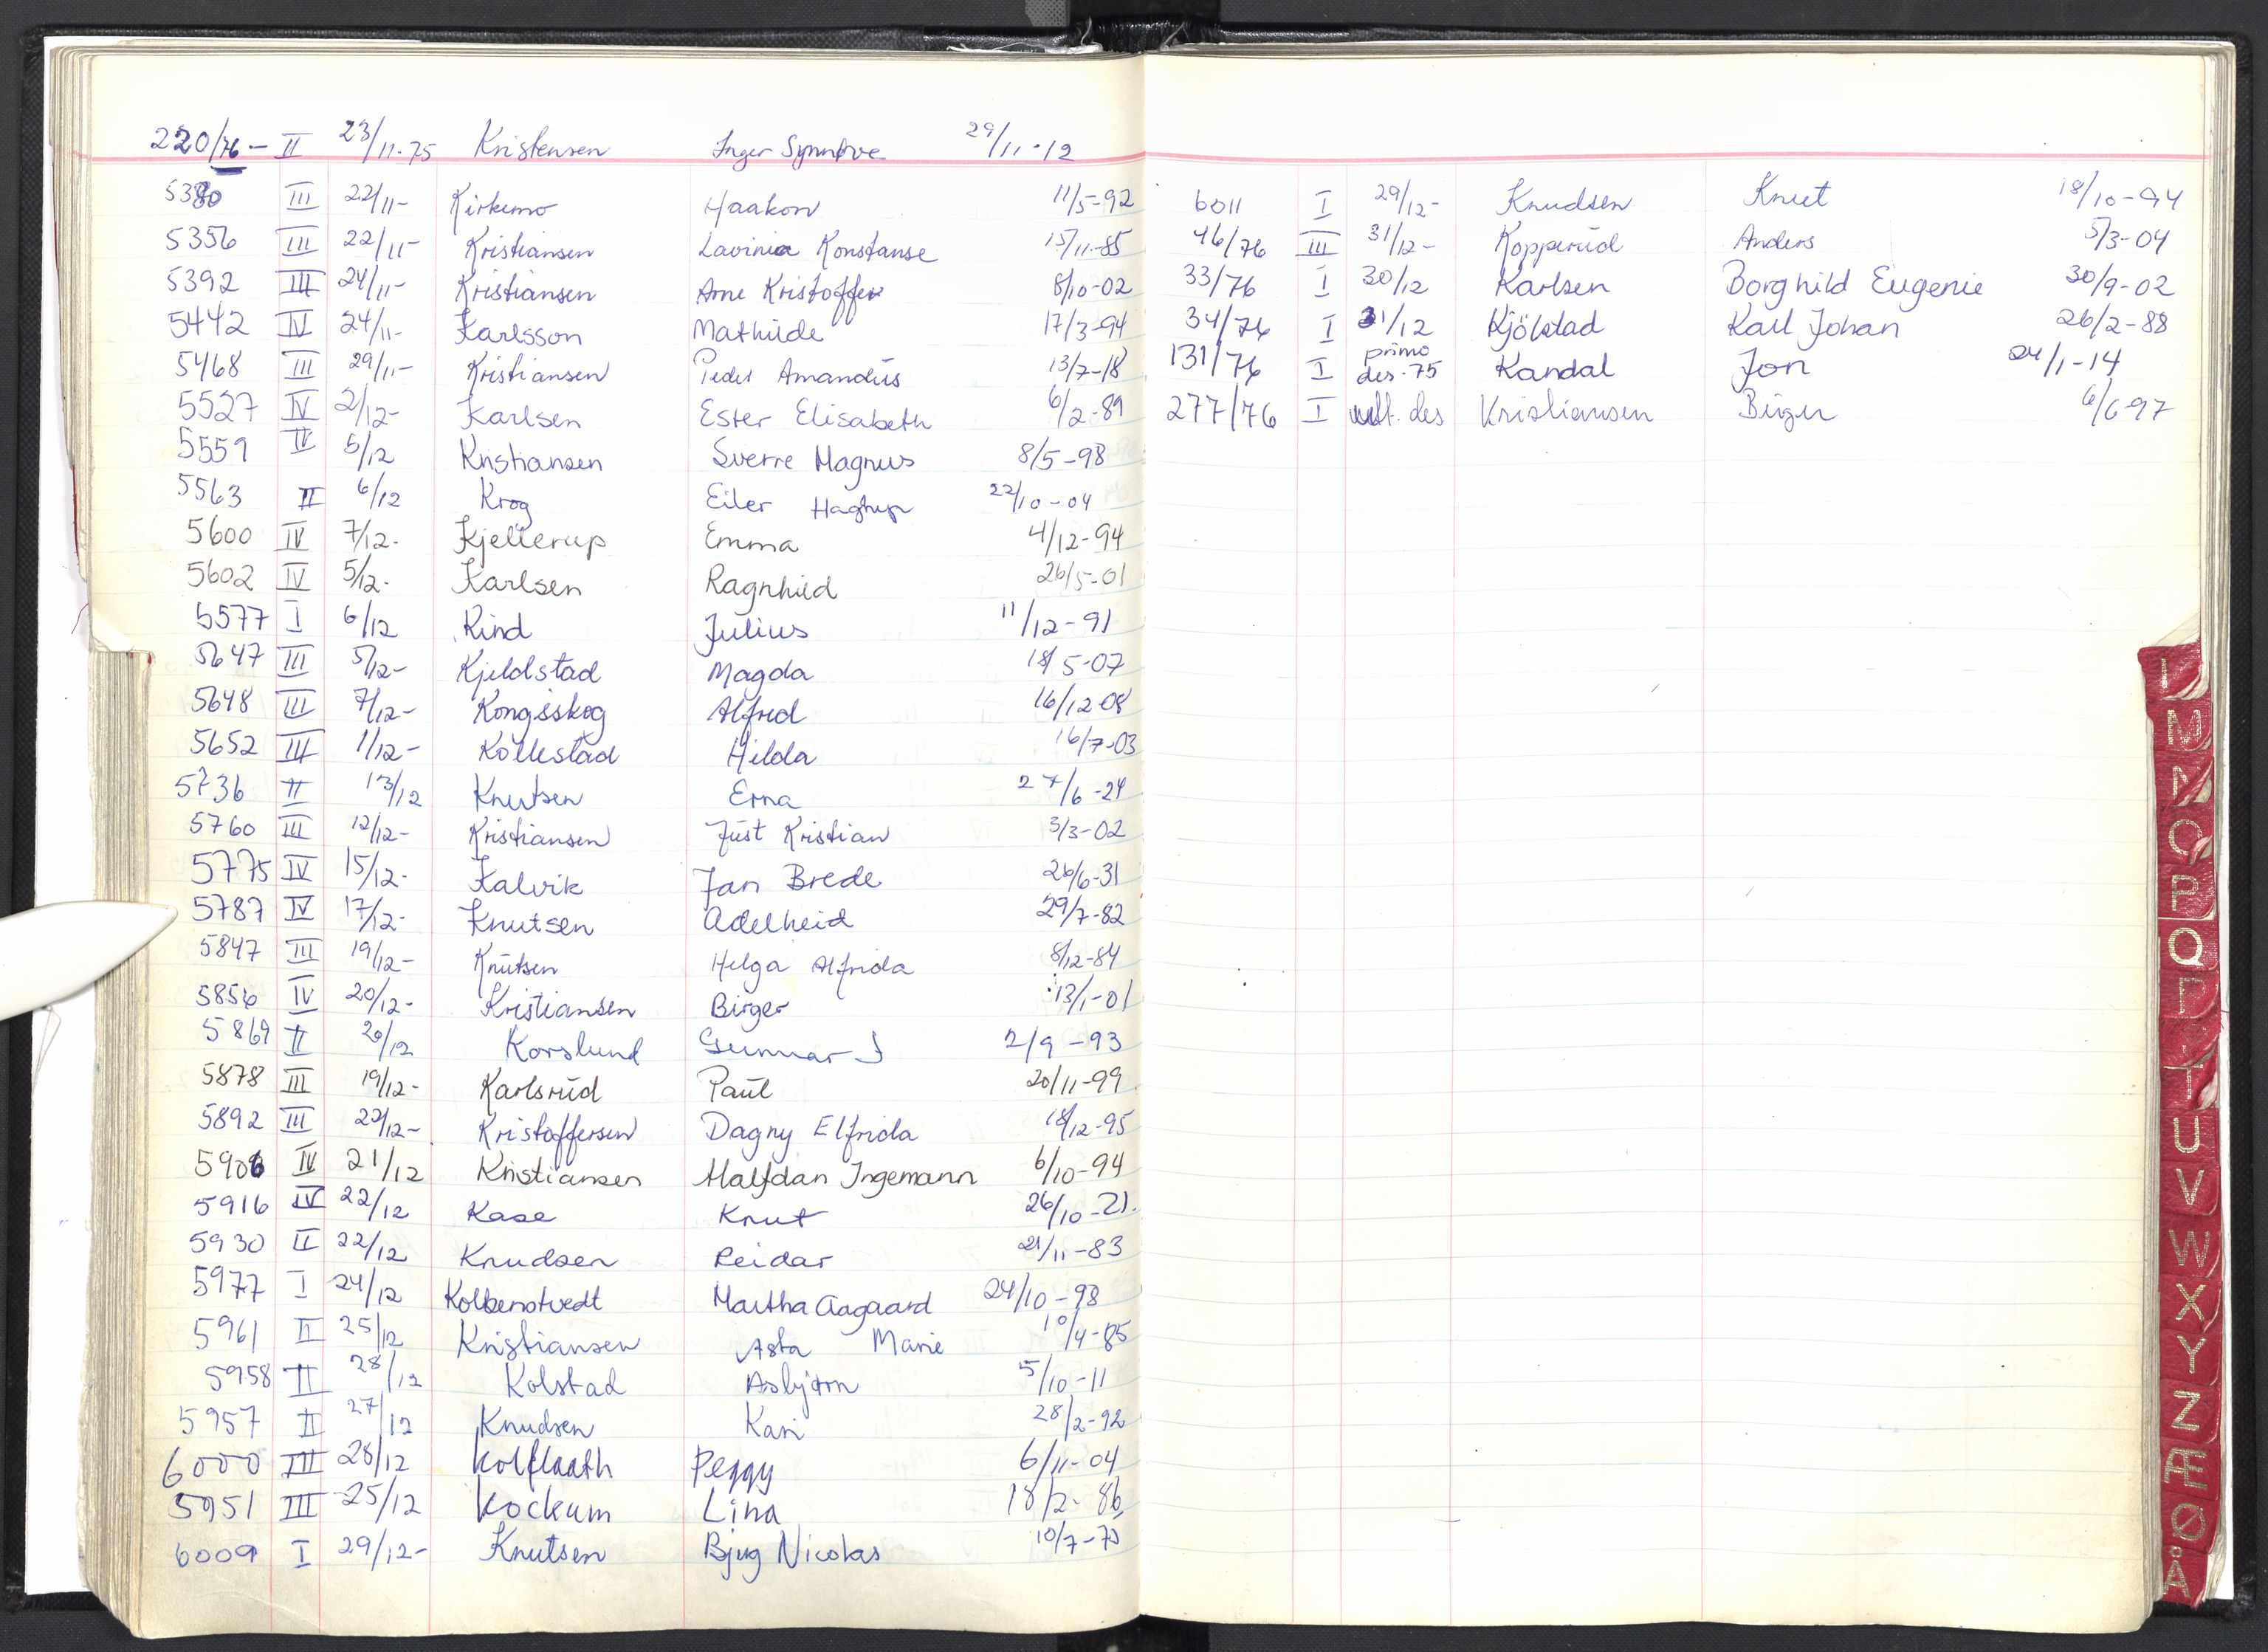 220/76 - II 23/11-75 Kristensen Inger Synnøve 29/11-12
5380 III 22/11- Kirkemo Haakon 11/5-92
5356 III 22/11- Kristiansen Lavinia Konstanse 15/11-85
5392 III 24/11- Kristiansen Arne Kristoffer 8/10-02
5442 IV 24/11- Karlsson Mathilde 17/3-94
5468 III 29/11- Kristiansen Peder Amandus 13/7-18
5527 IV 2/12- Karlsen Ester Elisabeth 6/2-89
5559 IV 5/12 Kristiansen Sverre Magnus 8/5-98
5563 II 6/12 Krog Eiler Hagtrup 22/10-04
5600 IV 7/12- Kjellerup Emma 4/12-94
5602 IV 5/12- Karlsen Ragnhild 26/5-01
5577 I 6/12 Kind Julius 11/12-91
5647 III 5/12- Kjeldstad Magda 18/5-07
5648 III 7/12- Kongsskog Alfred 16/12-08
5652 III 1/12- Kollestad Hilda 16/7-03
5736 II 13/12 Knutsen Erna 27/6-24
5760 III 12/12- Kristiansen Just Kristian 3/3-02
5775 IV 15/12- Kalvik Jan Brede 26/6-31
5787 IV 17/12- Knutsen Adelheid 29/7-82
5847 III 19/12- Knutsen Helga Alfrida 8/12-84
5856 IV 20/12- Kristiansen Birger 13/1-01
5869 II 20/12 Korslund Gunnar J 2/9-93
5878 III 19/12- Karlsrud Paul 20/11-99
5892 III 22/12- Kristoffersen Dagny Elfrida 18/12-95
5906 IV 21/12 Kristiansen Halfdan Ingemann 6/10-94
5916 IV 22/12 Kase Knut 26/10-21
5930 II 22/12 Knudsen Reidar 21/11-83
5977 I 24/12 Kolbenstvedt Martha Aagaard 24/10-98
5961 II 25/12 Kristiansen Asta Marie 10/4-85
5958 II 28/12 Kolstad Asbjørn 5/10-11
5957 II 27/12 Knudsen Kari 28/2-92
6000 III 28/12 Kolflaath Peggy 6/11-04
5951 III 25/12 Kockum Lina 18/2-86
6009 I 29/12- Knutsen Bjug Nicolas 10/7-70
6011 I 29/12- Knudsen Knut 18/10-94
46/76 III 31/12- Kopperud Anders 5/3-04
33/76 I 30/12 Karlsen Borghild Eugenie 30/9-02
34/76 I 31/12 Kjölstad Karl Johan 26/2-88
131/76 I primo des-75 Kandal Jon 24/1-14
277/76 I ult. des Kristiansen Birger 6/6-97
L
M
N
O
P
Q
R
T
U
V
W
X
Y
Z
Æ
Ø
Å